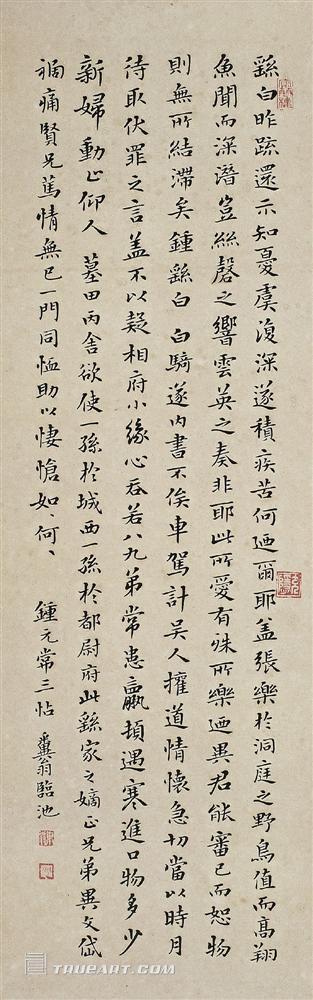 繇白昨疏還示知憂虞復深遂積疾苦何迺爾耶盖張樂於洞庭之野鳥值而髙翔
魚聞而深潛豈絲磬之響雲英之奏非耶此所愛有殊所樂迺異君能審己而恕物
則無所結滯矣鍾繇白 白騎遂內書不俟車駕計吴人擁道情懷急切當以時月
待取伏罪之言盖不以疑相府小緣心吞若八九弟常患羸頓遇寒進口物多少
新婦動止仰人 墓田丙舍欲使一孫於城西一孫於都尉府此繇家之嫡正兄弟異文岱
禍痛賢兄篤情無已一門同恤助以悽愴如、何、
鍾元常三帖
糞翁臨池
TRUEART.COM